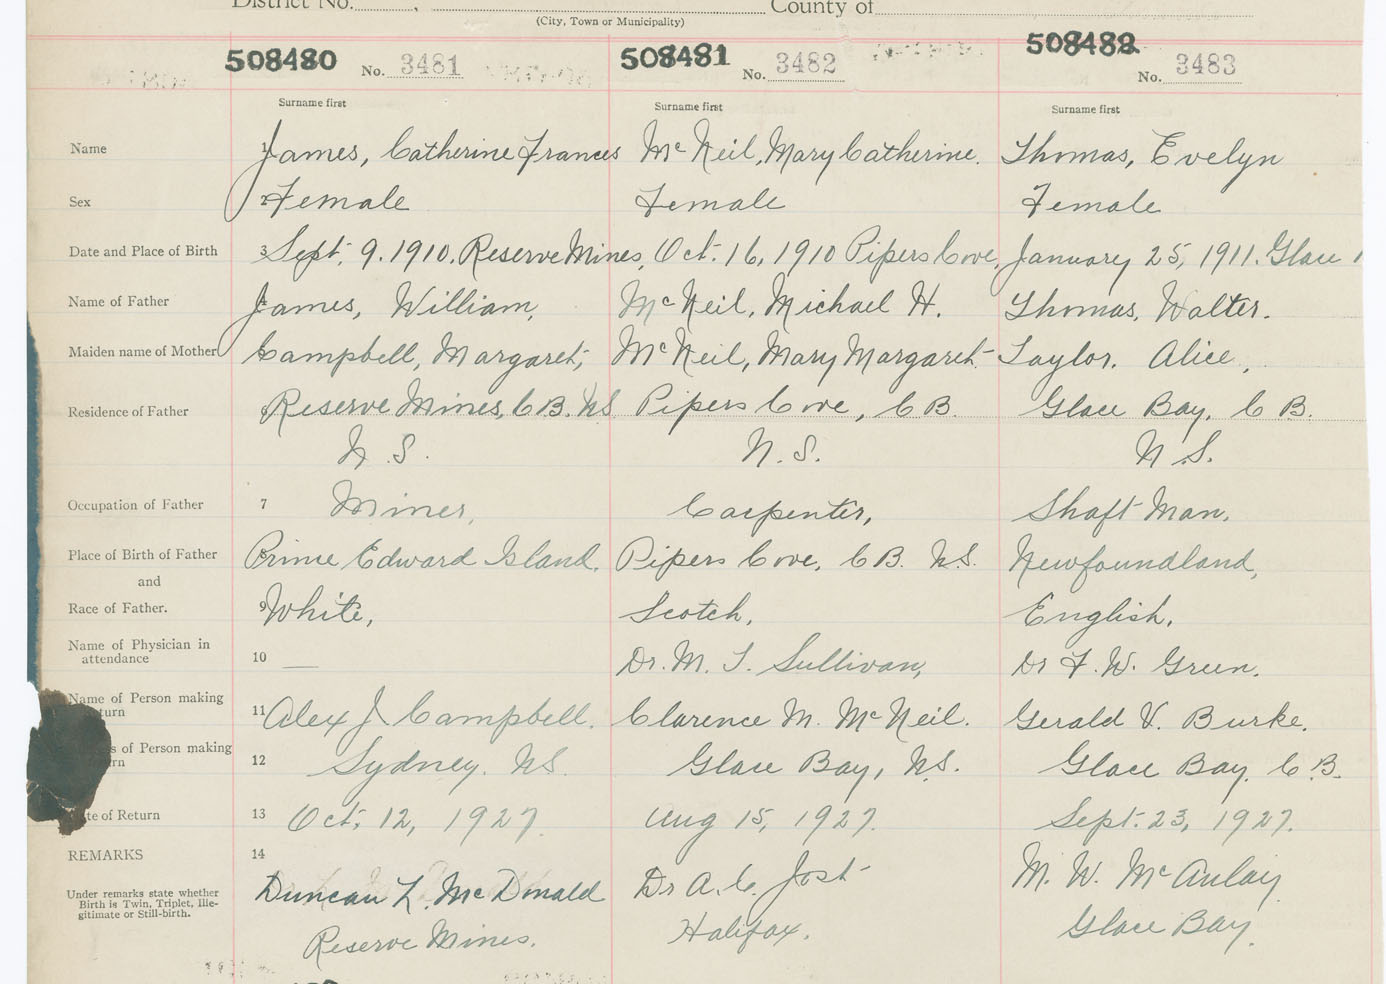 District No. , County of
(City, Town or Municipality)
508480 No. 3481 508481 No. 3482 508482 No. 3483
Surname first Surname first Surname first
Name 1 James, Catherine Frances McNeil, Mary Catherine. Thomas, Evelyn
Sex 2 Female Female Female
Date and Place of Birth 3 Sept. 9. 1910. Reserve Mines, Oct. 16, 1910 Pipers Cove, January 25, 1911. Glace
Name of Father 4 James, William, McNeil, Michael H. Thomas, Walter.
Maiden name of Mother Campbell, Margaret, McNeil, Mary Margaret Taylor. Alice,
Residence of Father 6 Reserve Mines, C B. N S Pipers Cove, C B. Glace Bay, C B.
N. S. N. S. N. S.
Occupation of Father 7 Miner, Carpenter, Shaft Man.
Place of Birth of Father 8 Prince Edward Island. Pipers Cove, C B. N.S. Newfoundland,
and
Race of Father. 9 White, Scotch, English.
Name of Physician in
attendance 10 — Dr. M. T. Sullivan, Dr F. W. Green.
Name of Person making
turn 11 Alex J. Campbell. Clarence M. McNeil. Gerald V. Burke.
s of Person making
rn 12 Sydney. N.S. Glace Bay, N.S. Glace Bay, C B.
te of Return 13 Oct. 12, 1927. Aug 15, 1927. Sept. 23, 1927.
REMARKS 14
Under remarks state whether
Birth is Twin, Triplet, Ille-
gitimate or Still-birth.
Duncan L. McDonald Dr A. C. Jost M. W. McAulay
Reserve Mines. Halifax. Glace Bay.